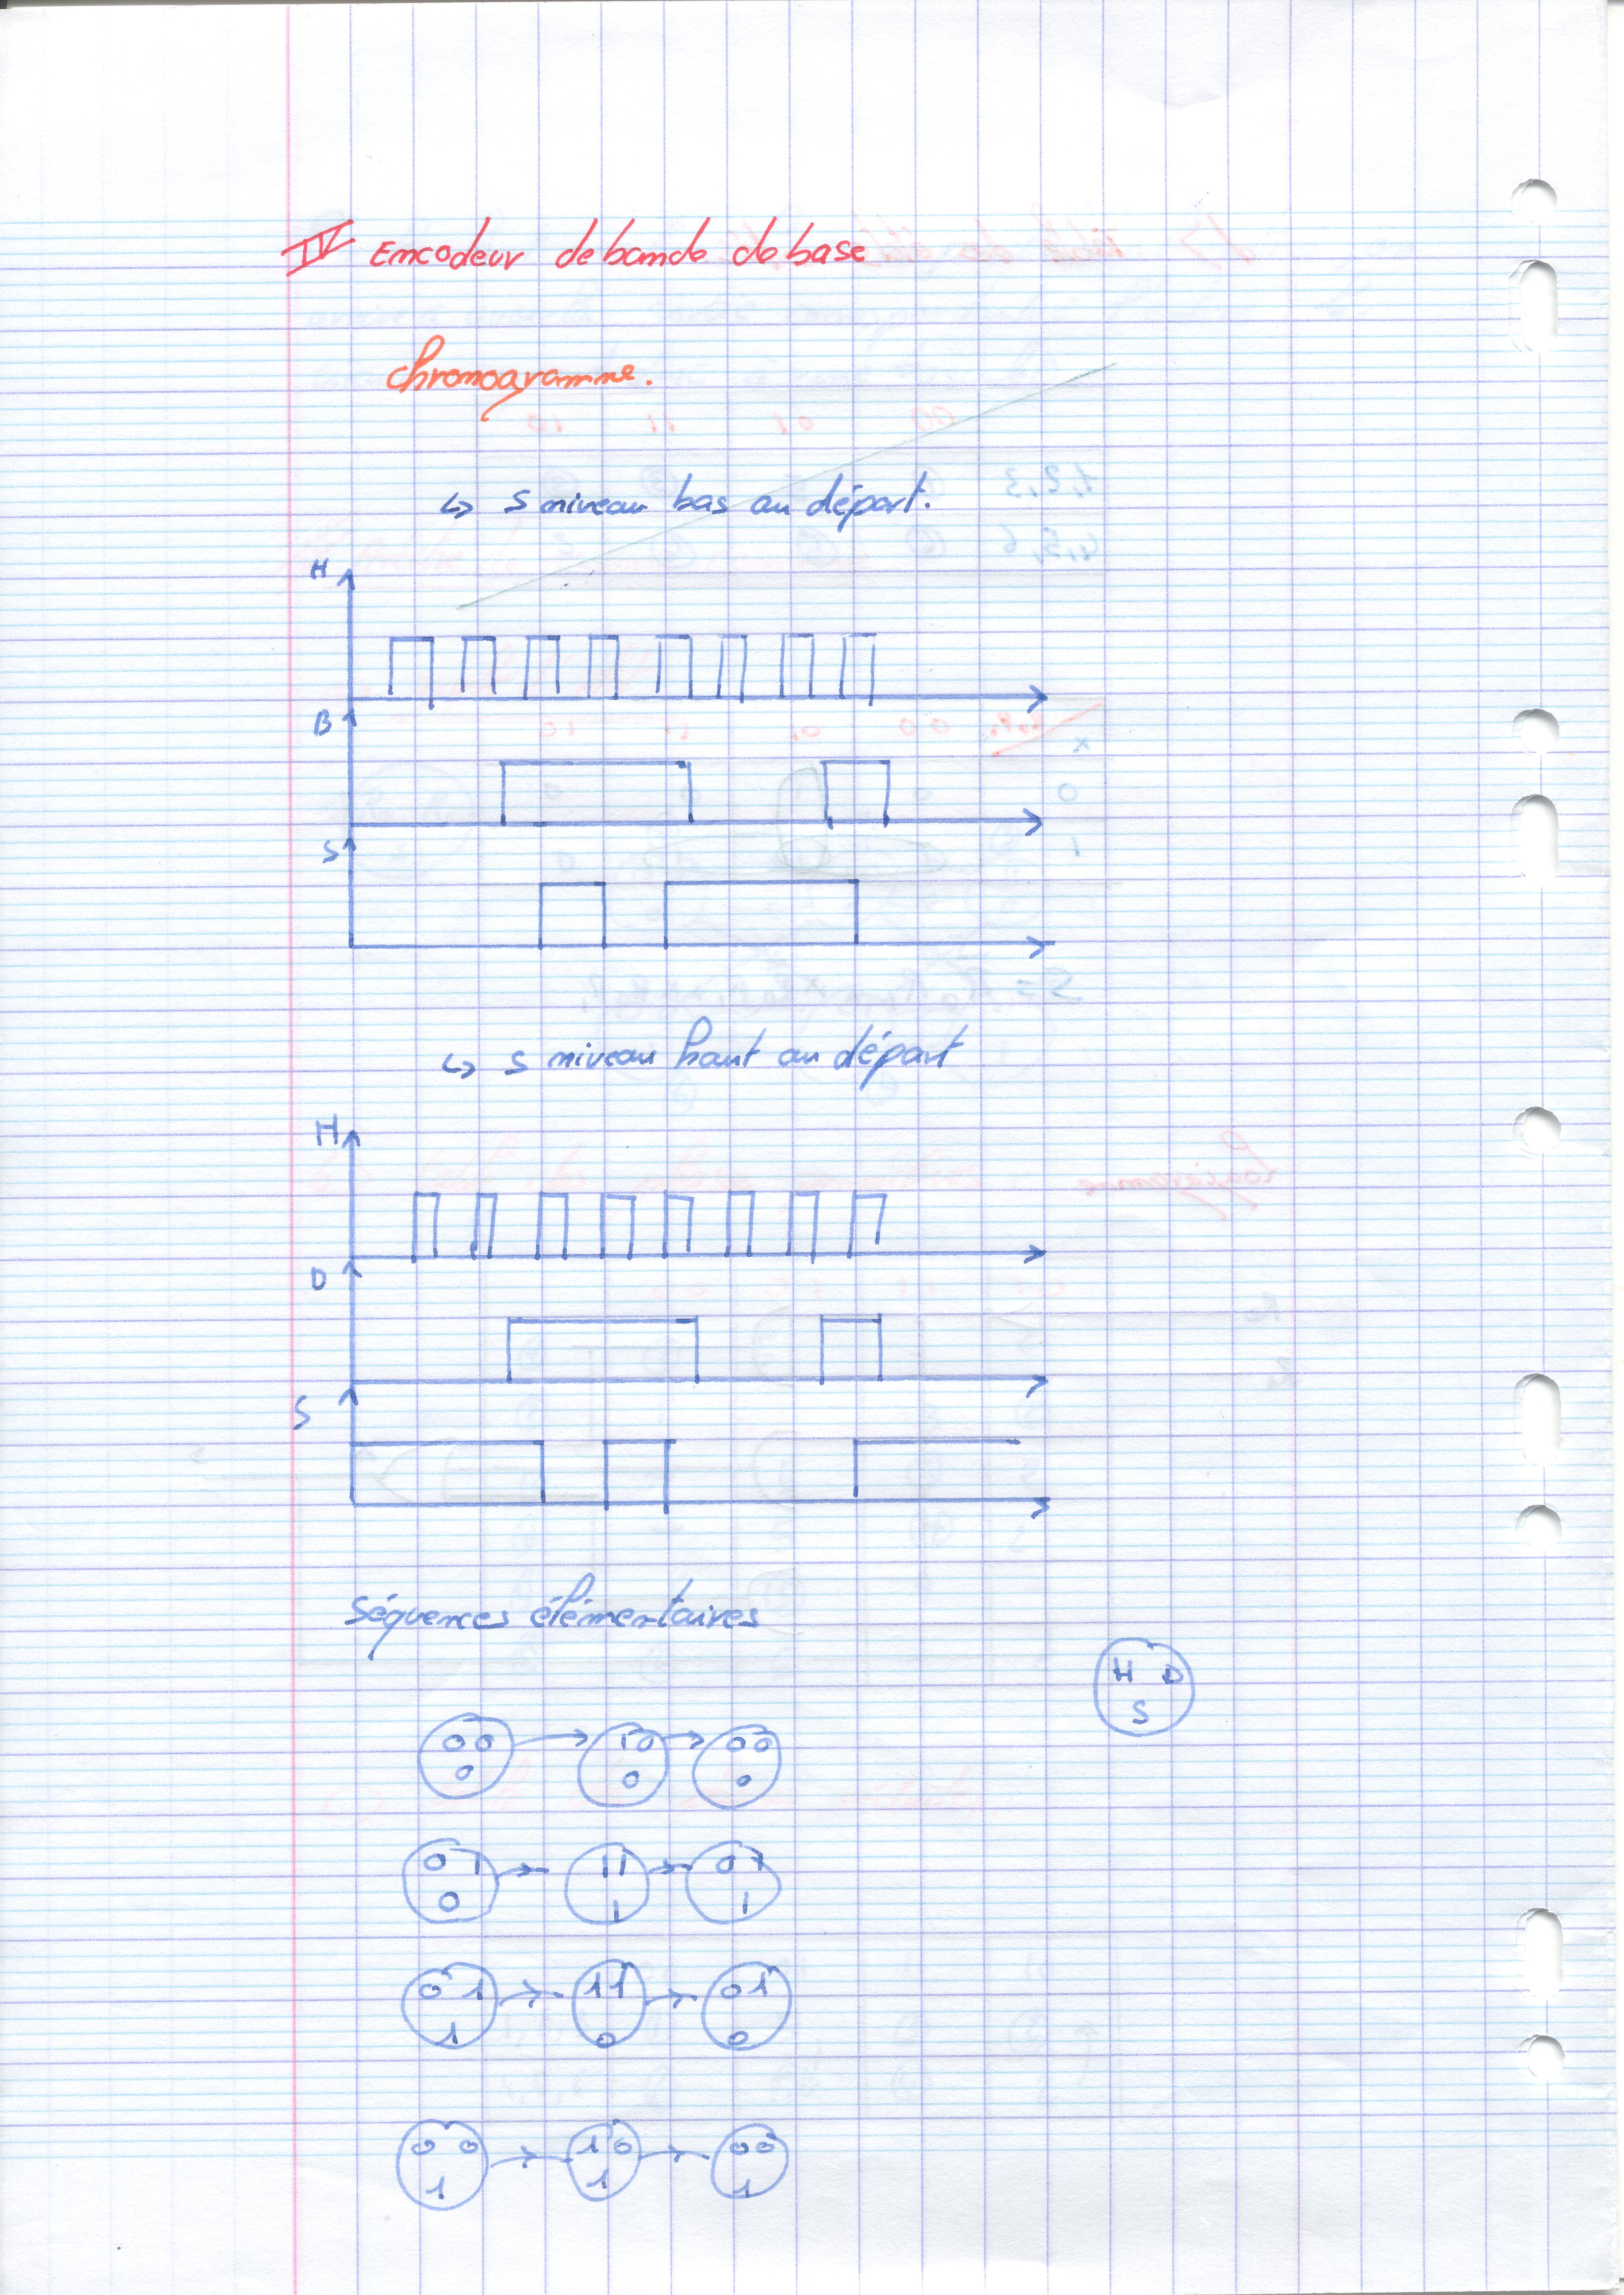 IV Encodeur de bande de base
Chronogramme.
↳ S niveau bas au départ.
H
B
S
↳ S niveau haut au départ
H
D
S
Séquences élémentaires
H D
S
00 → 10 → 00
0 0 0
01 → 11 → 01
0 1 1
01 → 11 → 01
1 0 0
00 → 10 → 00
1 1 1